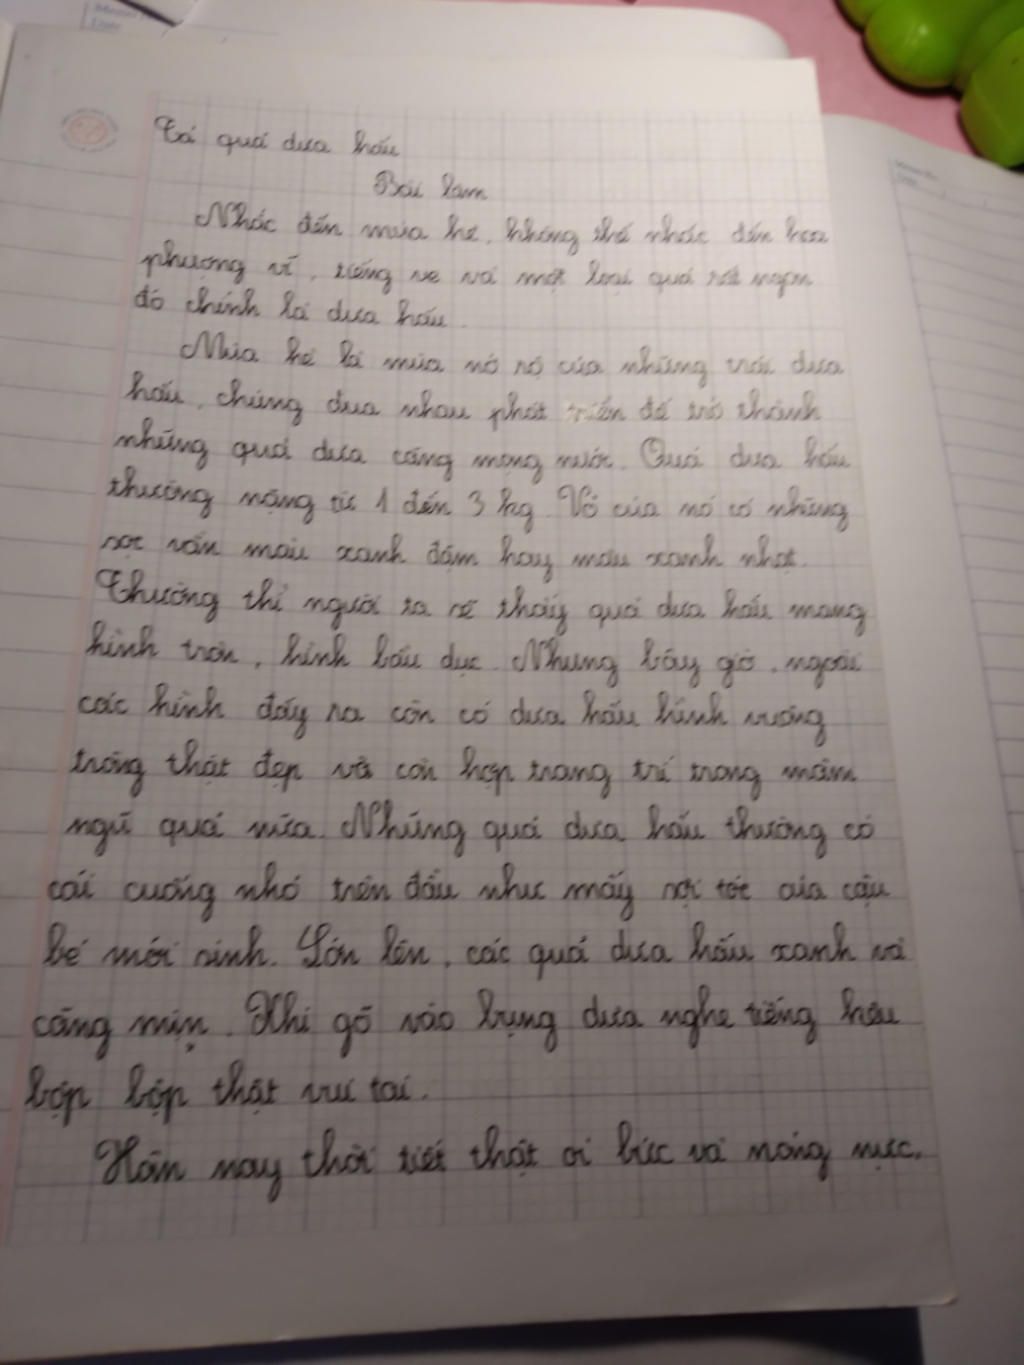 Tả quả dưa hấu
Bài làm
Nhắc đến mùa hè, không thể nhắc đến hoa
phượng vĩ, tiếng ve và một loại quả rất ngon
đó chính là dưa hấu.
Mùa hè là mùa nở rộ của những trái dưa
hấu, chúng đua nhau phát triển để trở thành
những quả dưa căng mọng nước. Quả dưa hấu
thường nặng từ 1 đến 3 kg. Vỏ của nó có những
sọc vằn màu xanh đậm hay màu xanh nhạt.
Thường thì người ta sẽ thấy quả dưa hấu mang
hình tròn, hình bầu dục. Nhưng bây giờ, ngoài
các hình đấy ra còn có dưa hấu hình vuông
trông thật đẹp và còn hợp trang trí trong mâm
ngũ quả nữa. Những quả dưa hấu thường có
cái cuống nhỏ trên đầu như mấy sợi tóc của cậu
bé mới sinh. Lớn lên, các quả dưa hấu xanh và
căng mịn. Khi gõ vào bụng dưa nghe tiếng kêu
bộp bộp thật vui tai.
Hôm nay thời tiết thật oi bức và nóng nực,